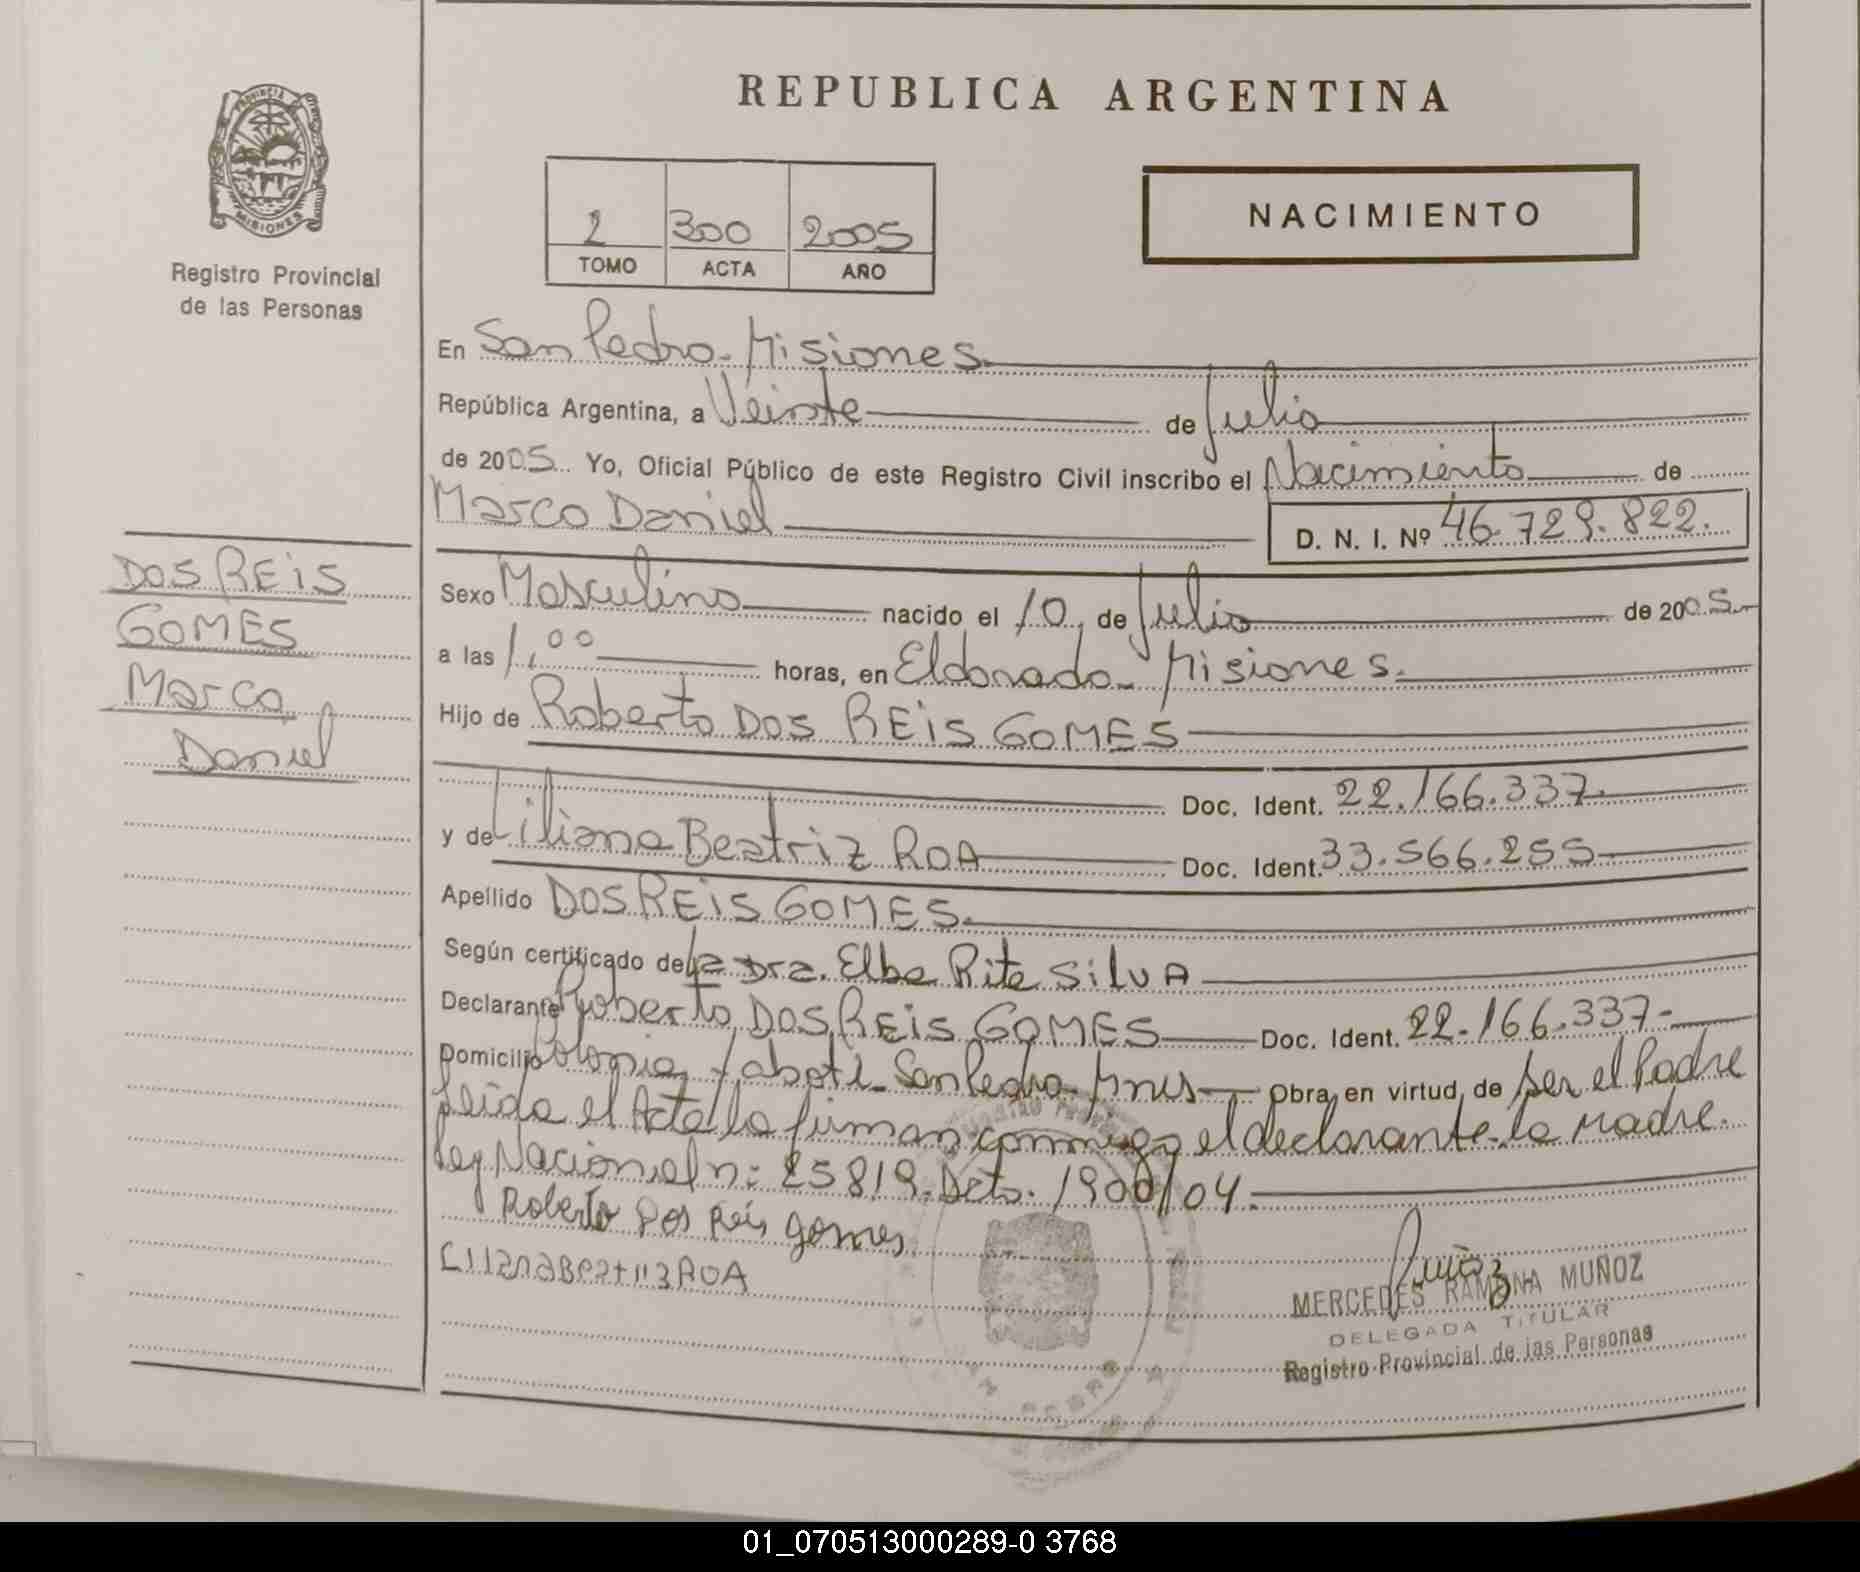 REPUBLICA ARGENTINA
PROVINCIA DE
MISIONES
Registro Provincial
de las Personas
2 300 2005
TOMO ACTA AÑO
NACIMIENTO
En San Pedro - Misiones.
República Argentina, a Veinte de Julio
de 2005. Yo, Oficial Público de este Registro Civil inscribo el Nacimiento de
Marco Daniel D. N. I. Nº 46.729.822.
DOS REIS
GOMES
Marco
Daniel
Sexo Masculino nacido el 10 de Julio de 2005.-
a las 1,00 horas, en Eldorado - Misiones.
Hijo de Roberto DOS REIS GOMES
Doc. Ident. 22.166.337.
y de Liliana Beatriz ROA Doc. Ident. 33.566.255
Apellido DOS REIS GOMES.
Según certificado de la Dra. Elba Rita SILVA
Declarante Roberto DOS REIS GOMES Doc. Ident. 22.166.337-
Domicilio Colonia Yaboti - San Pedro - Mnes Obra en virtud de ser el Padre
leida el Acta la firman conmigo el declarante - la madre.
Ley Nacional n: 25819. Dcto. 1900/04.
Roberto Dos Reis gomes
LilianaBeatrizROA
MERCEDES RAMONA MUÑOZ
DELEGADA TITULAR
Registro Provincial de las Personas
01_070513000289-0 3768